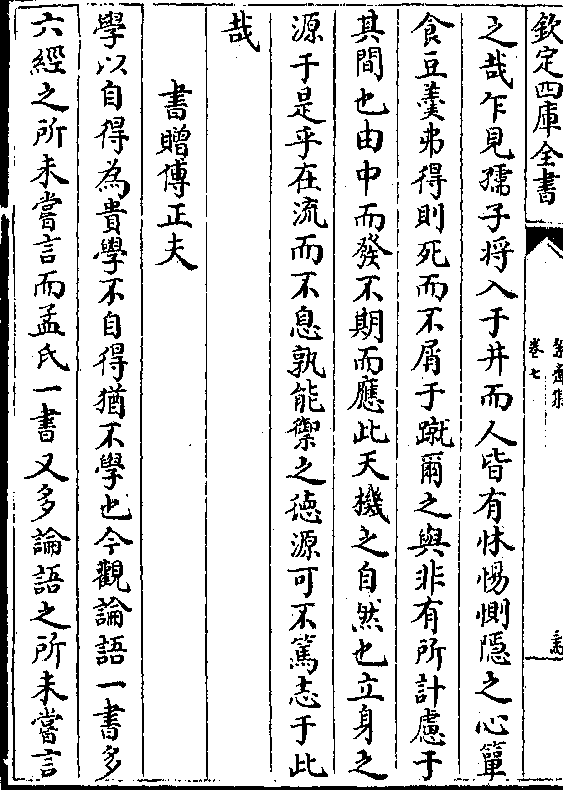 欽定四庫全書
卷七
之哉乍見孺子将入于井而人皆有怵惕惻隱之心簞
食豆羹弗得則死而不屑于蹴爾之與非有所計慮于
其間也由中而發不期而應此天機之自然也立身之
源于是乎在流而不息孰能禦之德源可不篤志于此
哉
書贈傅正夫
學以自得為貴學不自得猶不學也今觀論語一書多
六經之所未嘗言而孟氏一書又多論語之所未嘗言